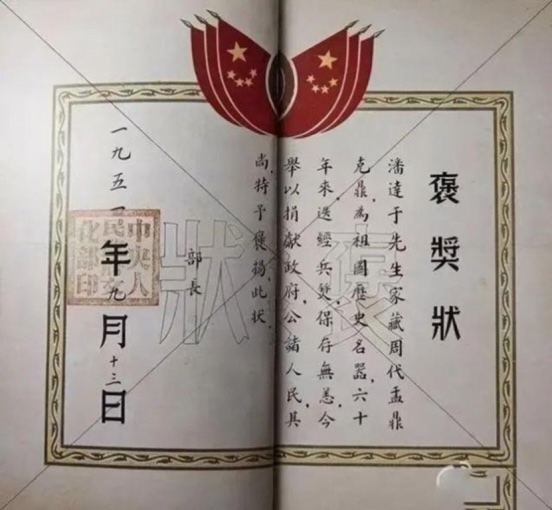 褒獎狀
潘達于先生家藏周代盂鼎
克鼎,為祖國歷史名器,六十
年來,迭經兵燹,保存無恙,今
舉以捐獻政府,公諸人民,其
尚,特予褒揚,此狀。
部長
一九五一年九月十三日
中央人
化部印
褒
狀